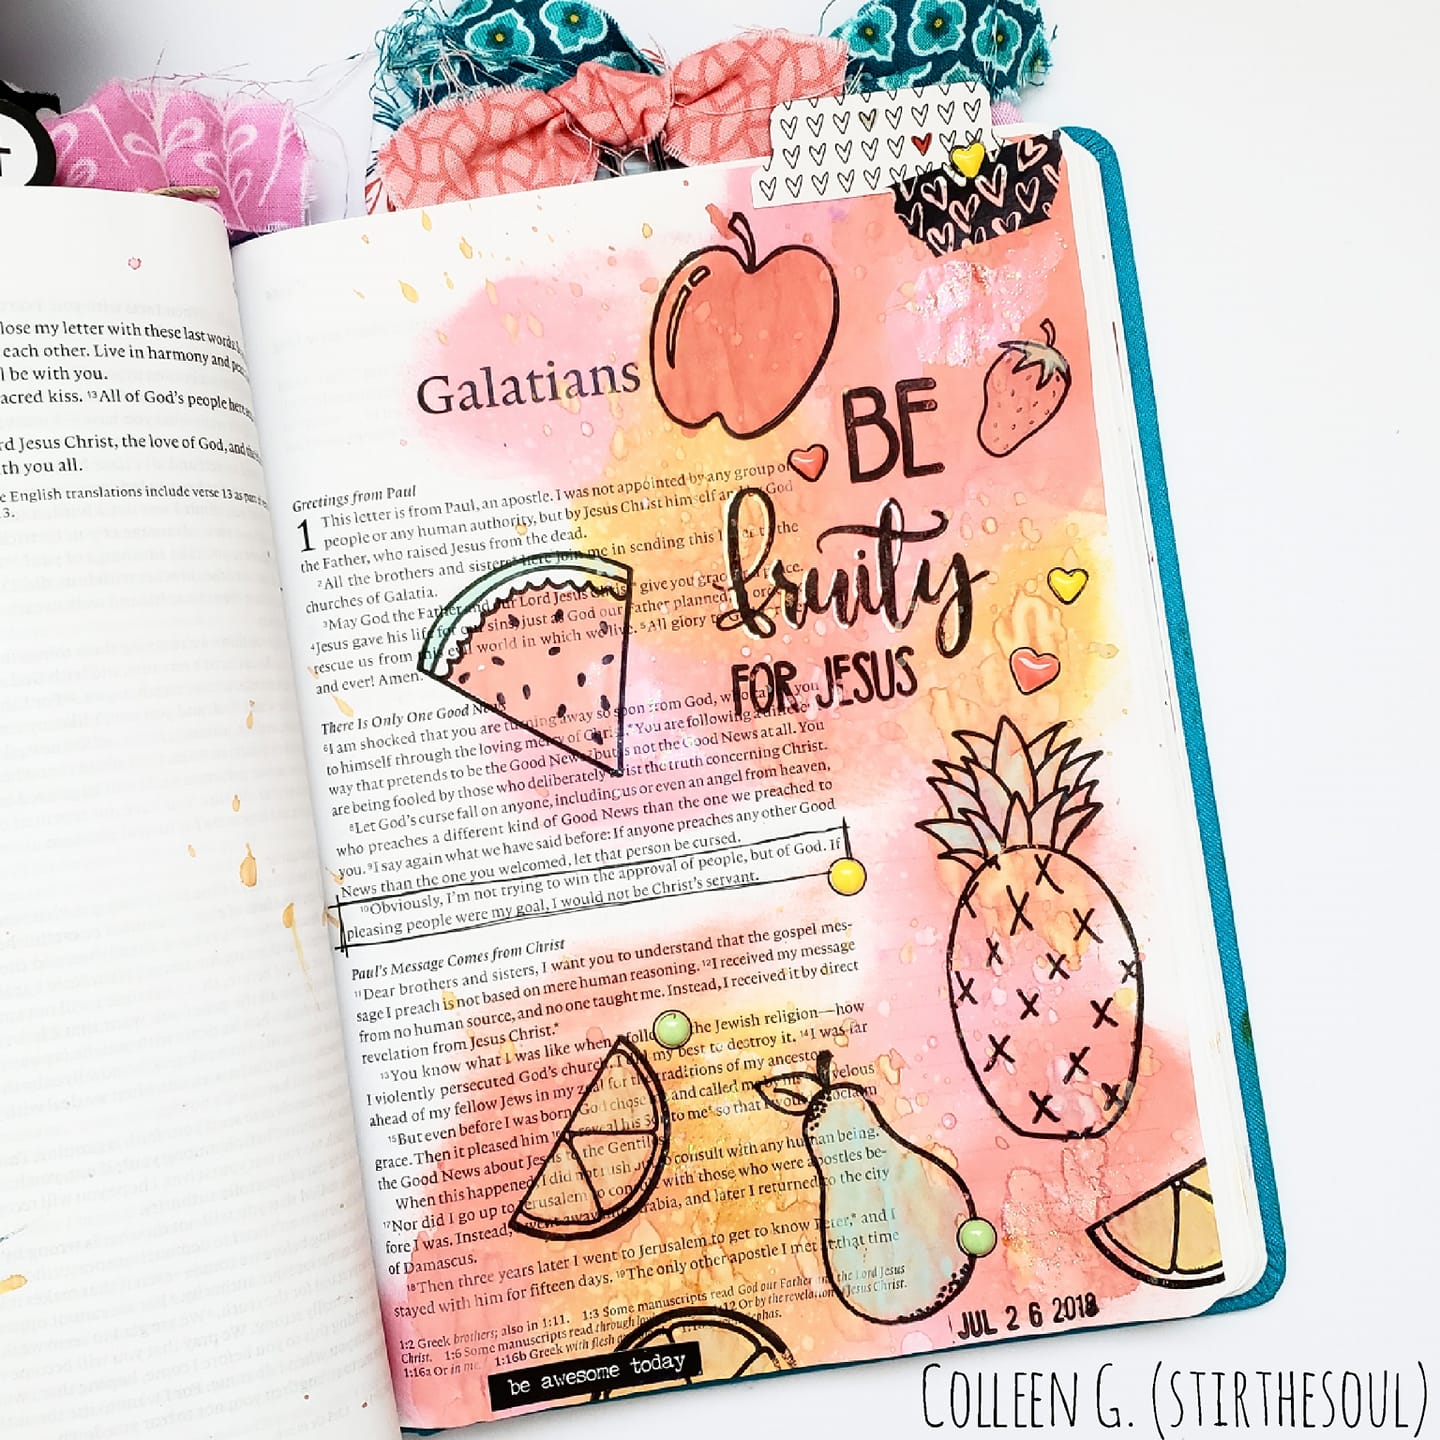 lose my letter with these last words
each other. Live in harmony and
l be with you.
acred kiss. 13All of God's people here
rd Jesus Christ, the love of God, and the
th you all.
e English translations include verse 13 as part
3.
Galatians
BE
fruity
FOR JESUS
Greetings from Paul
1 This letter is from Paul, an apostle. I was not appointed by any group of
people or any human authority, but by Jesus Christ himself and by God
the Father, who raised Jesus from the dead.
2All the brothers and sisters* here join me in sending this letter to the
churches of Galatia.
3May God the Father and our Lord Jesus Christ* give you grace and peace.
4Jesus gave his life for our sins, just as God our Father planned, in order to
rescue us from this evil world in which we live. 5All glory to God
and ever! Amen.
There Is Only One Good News
6I am shocked that you are turning away so soon from God, who called you
to himself through the loving mercy of Christ.* You are following a different
way that pretends to be the Good News 7but is not the Good News at all. You
are being fooled by those who deliberately twist the truth concerning Christ.
8Let God's curse fall on anyone, including us or even an angel from heaven,
who preaches a different kind of Good News than the one we preached to
you. 9I say again what we have said before: If anyone preaches any other Good
News than the one you welcomed, let that person be cursed.
10Obviously, I'm not trying to win the approval of people, but of God. If
pleasing people were my goal, I would not be Christ's servant.
Paul's Message Comes from Christ
11Dear brothers and sisters, I want you to understand that the gospel mes-
sage I preach is not based on mere human reasoning. 12I received my message
from no human source, and no one taught me. Instead, I received it by direct
revelation from Jesus Christ.*
13You know what I was like when I followed the Jewish religion—how
I violently persecuted God's church. I did my best to destroy it. 14I was far
ahead of my fellow Jews in my zeal for the traditions of my ancestors.
15But even before I was born, God chose me and called me by his marvelous
grace. Then it pleased him 16to reveal his Son to me* so that I would proclaim
the Good News about Jesus to the Gentiles.
When this happened, I did not rush out to consult with any human being.
17Nor did I go up to Jerusalem to consult with those who were apostles be-
fore I was. Instead, I went away into Arabia, and later I returned to the city
of Damascus.
18Then three years later I went to Jerusalem to get to know Peter,* and I
stayed with him for fifteen days. 19The only other apostle I met at that time
1:2 Greek brothers; also in 1:11. 1:3 Some manuscripts read God our Father and the Lord Jesus
Christ. 1:6 Some manuscripts read through loving 1:12 Or by the revelation of Jesus Christ.
1:16a Or in me. 1:16b Greek with flesh
be awesome today
JUL 26 2018
COLLEEN G. (STIRTHESOUL)